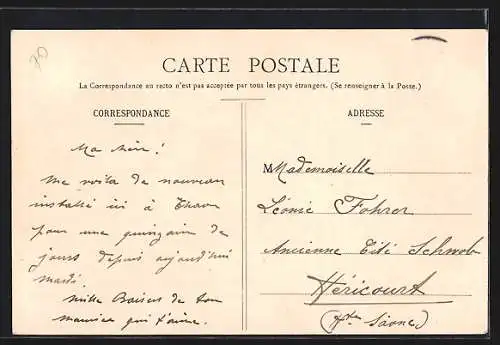 70
CARTE POSTALE
La Correspondance au recto n'est pas acceptée par tous les pays étrangers. (Se renseigner à la Poste.)
CORRESPONDANCE
Ma chérie!
Me voila de nouveau
installé ici à Thaon
pour une quinzaine de
jours depuis aujourd'hui
mardi.
Mille Baisers de ton
Maurice qui t'aime.
ADRESSE
M Mademoiselle
Léonie Fohrer
Ancienne Cité Schwob
Héricourt
(Hte Saône)